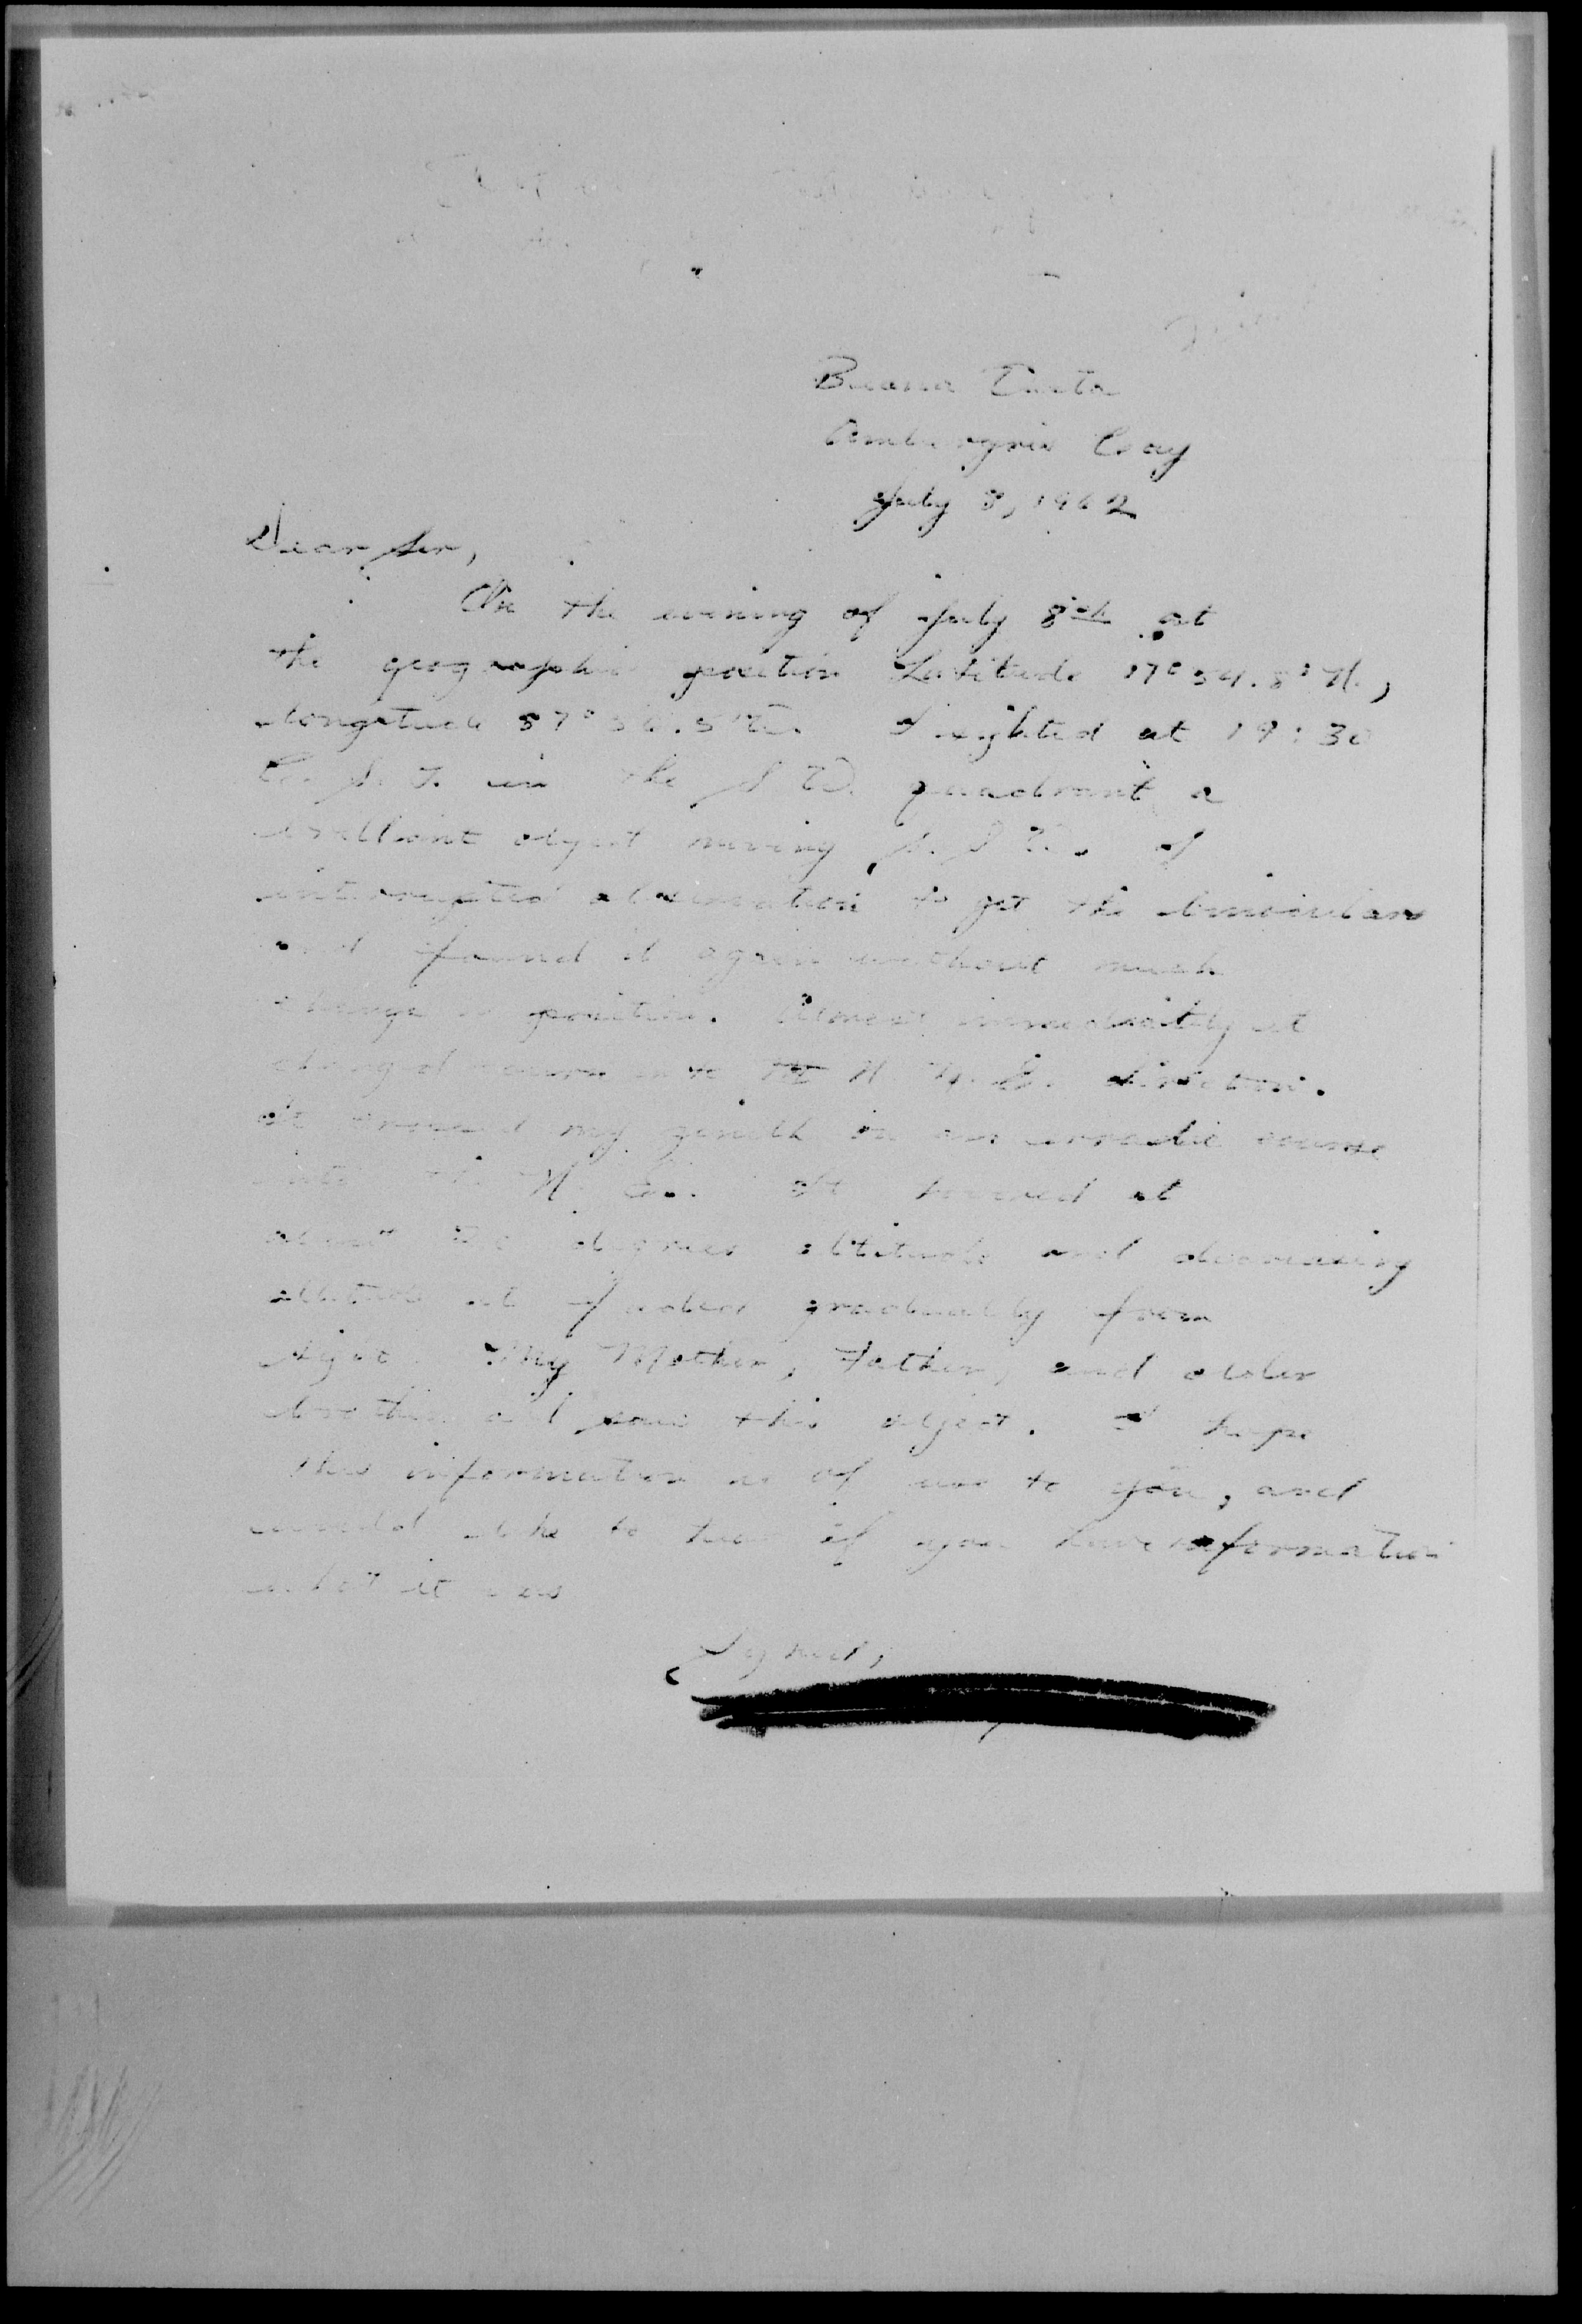 Buena Vista
Ambergris Cay
July 8, 1962
Dear Sir,
On the evening of July 8th at
the geographic position Latitude 17° 54.8' N.,
Longitude 87° .5' W. I sighted at 19:30
C. S. T. in the S W. quadrant a
brilliant object moving S. S W. I
interrupted observation to get the binoculars
and found it again without much
change in position. Almost immediately it
changed course into the N. N. E. direction.
It crossed my zenith on an erratic course
into the N. E. It hovered at
about degrees altitude and decreasing
altitude it faded gradually from
sight. My Mother, Father, and older
brother all saw this object. I hope
this information is of use to you, and
would like to hear if you have information
what it was
Signed,